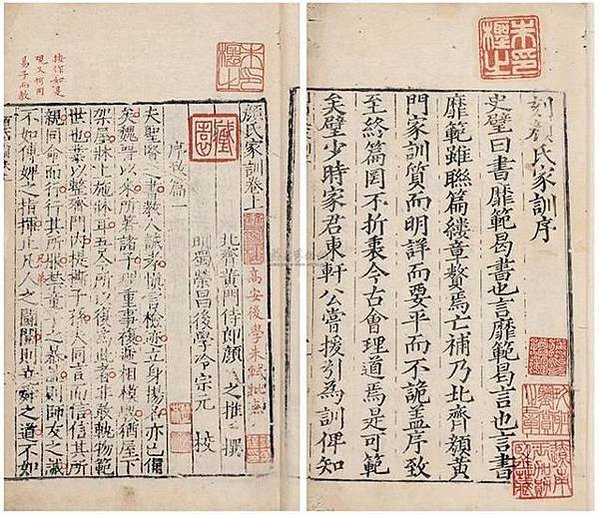 刻顏氏家訓序
史璧曰書靡範曷書也言靡範曷言也言書
靡範雖聯篇縷章贅焉亡補乃北齊顏黃
門家訓質而明詳而要平而不詭蓋序致
至終篇罔不折衷今古會理道焉是可範
矣璧少時家君東軒公嘗援引為訓俾知
顏氏家訓卷上
高安後學朱軾批點
北齊黃門侍郎顏之推撰
明蜀榮昌後學冷宗元校
序致篇一
夫聖賢之書教人誠孝慎言檢迹立身揚名亦已備
矣魏晉以來所著諸子理重事複遞相模斆猶屋下
架屋牀上施牀耳吾今所以復為此者非敢軌物範
世也業以整齊門內提撕子孫夫同言而信信其所
親同命而行行其所服禁童子之暴謔則師友之誡
不如傅婢之指揮止凡人之鬬鬩則堯舜之道不如
兄弟
觀又何用
易子而教